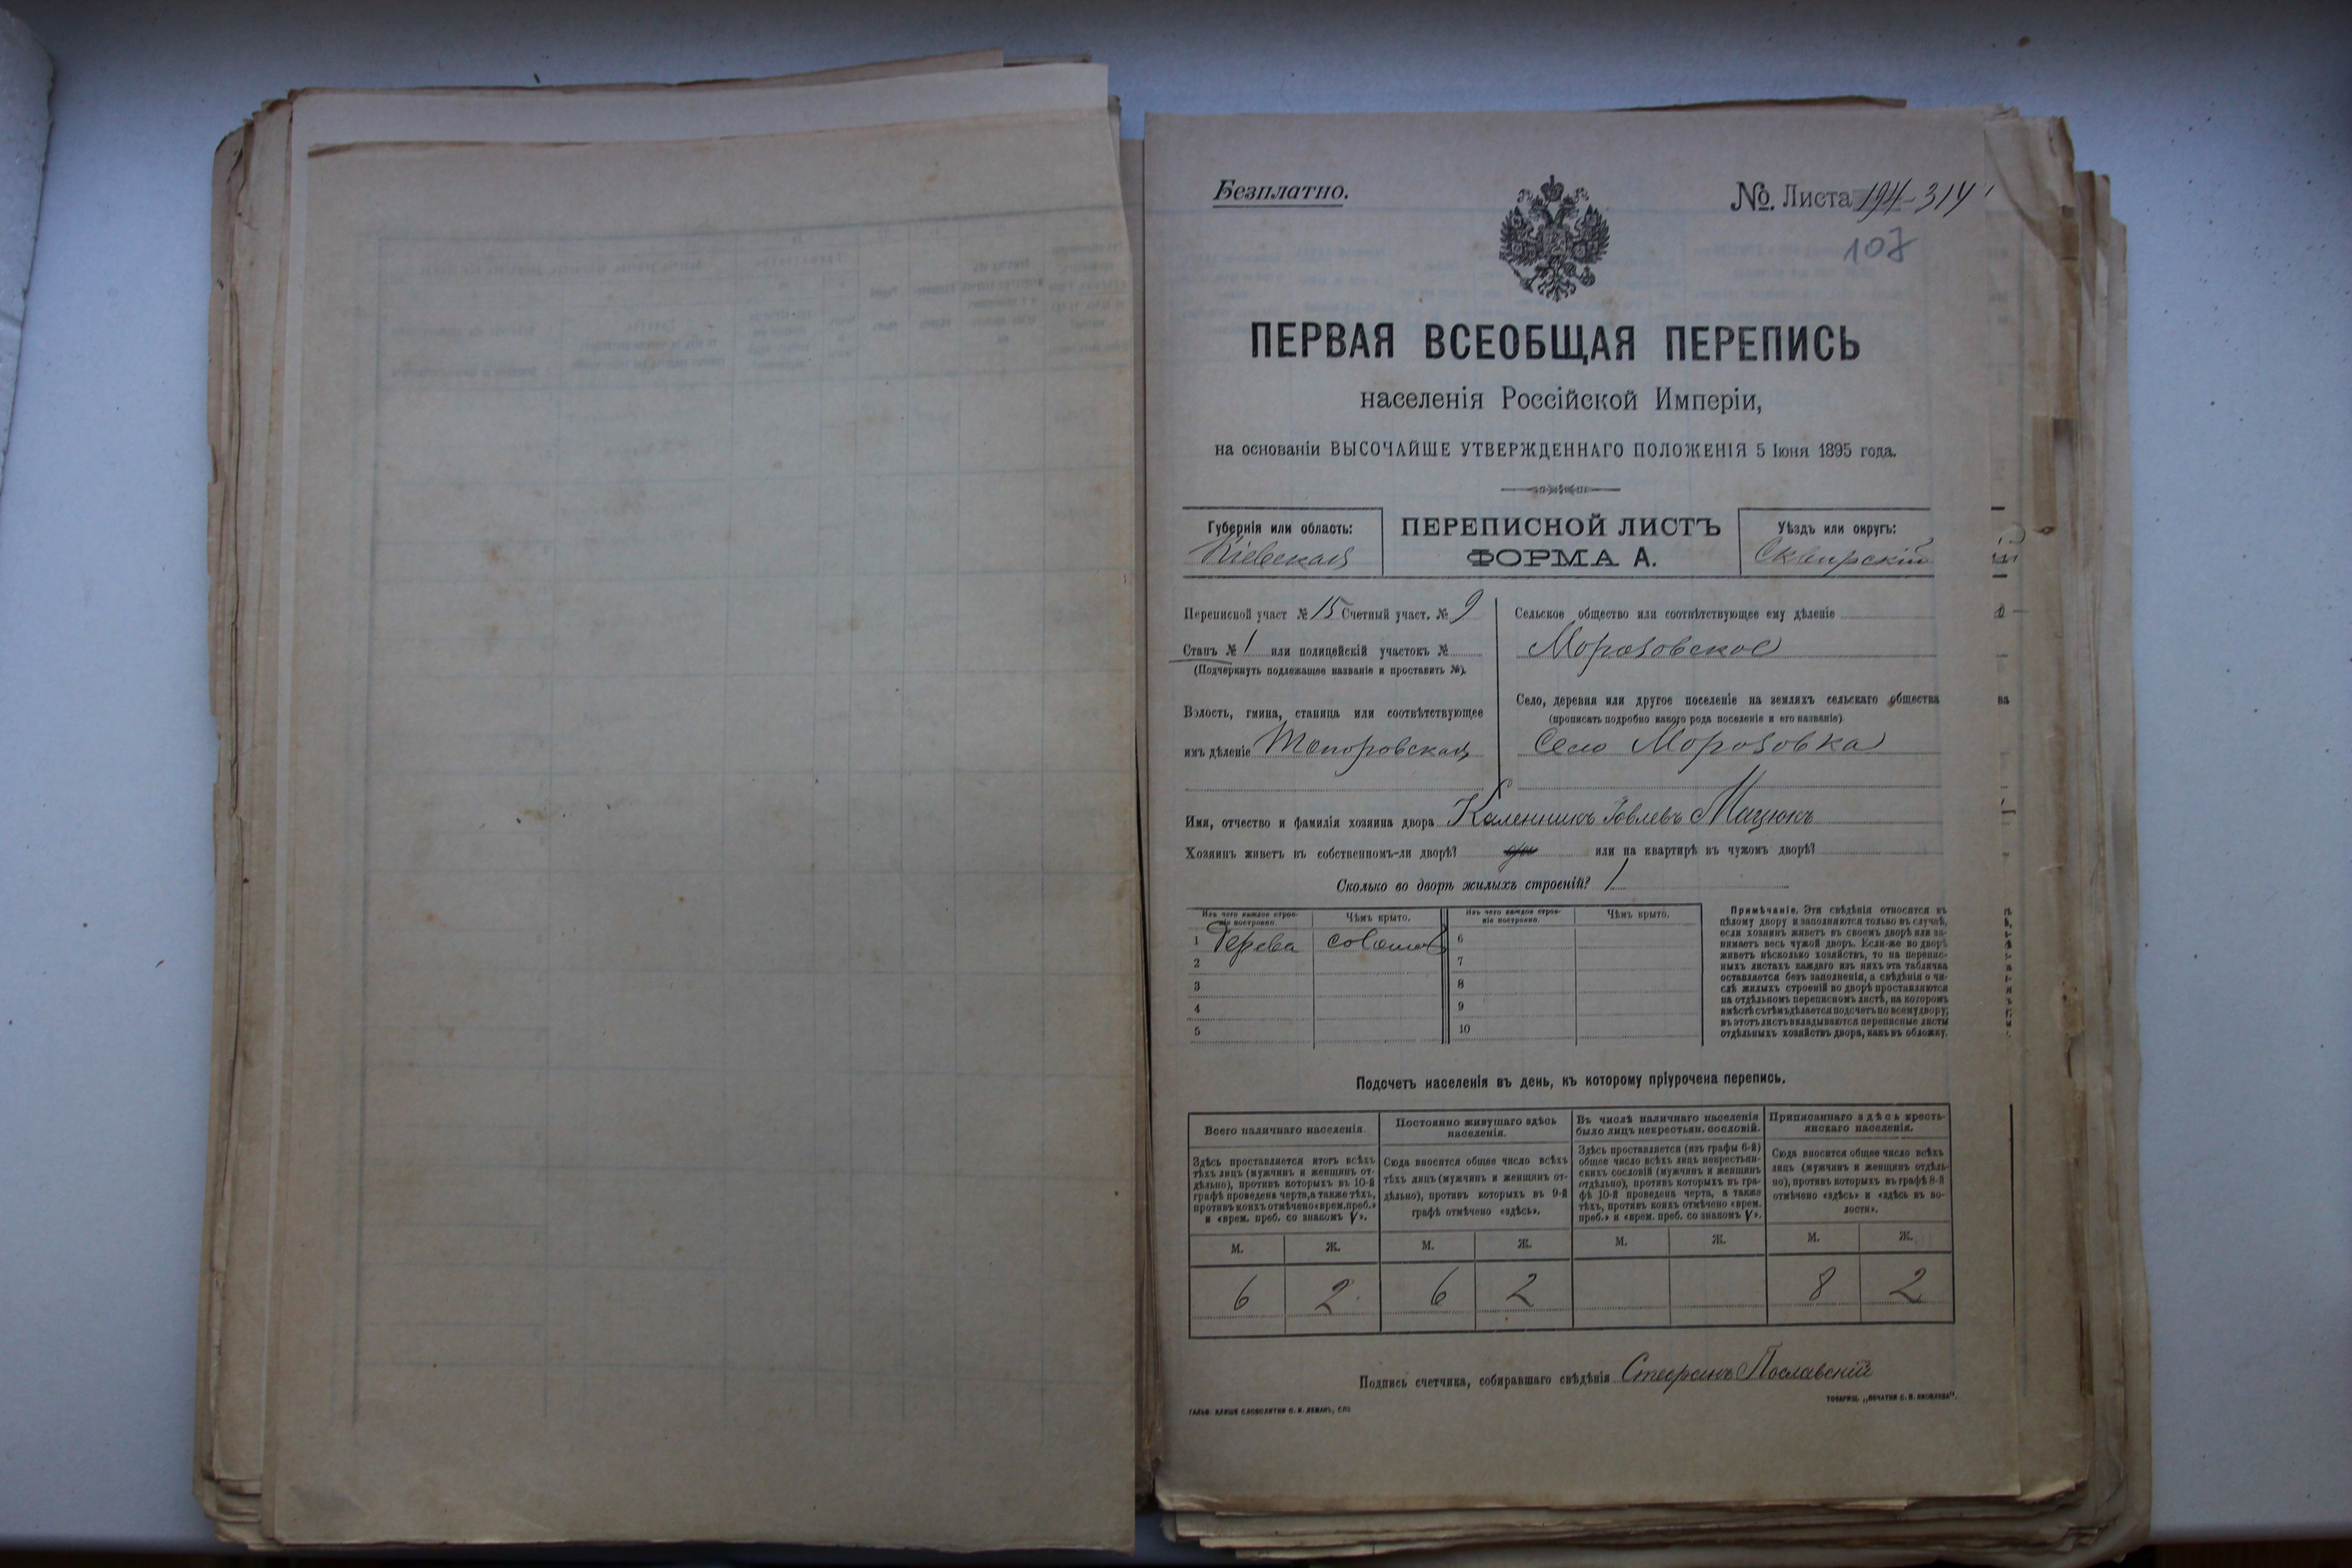 Безплатно.
№. Листа 194-314
107
ПЕРВАЯ ВСЕОБЩАЯ ПЕРЕПИСЬ
населенія Россійской Имперіи,
на основаніи ВЫСОЧАЙШЕ УТВЕРЖДЕННАГО ПОЛОЖЕНІЯ 5 Іюня 1895 года.
Губернія или область:
Кіевская
ПЕРЕПИСНОЙ ЛИСТЪ
ФОРМА А.
Уѣздъ или округъ:
Сквирскій
Переписной участ № 15 Счетный участ. № 9
Станъ № 1 или полицейскій участокъ №
(Подчеркнуть подлежащее названіе и проставить №).
Волость, гмина, станица или соотвѣтствующее
имъ дѣленіе Топоровская
Сельское общество или соотвѣтствующее ему дѣленіе
Морозовское
Село, деревня или другое поселеніе на земляхъ сельскаго общества
(прописать подробно какого рода поселеніе и его названіе)
Село Морозовка
Имя, отчество и фамилія хозяина двора Каленникъ Іовлевъ Мацюкъ
Хозяинъ живетъ въ собственномъ-ли дворѣ? или на квартирѣ въ чужомъ дворѣ?
Сколько во дворѣ жилыхъ строеній? 1
Изъ чего каждое строе-
ніе построено.
Чѣмъ крыто.
Изъ чего каждое строе-
ніе построено.
Чѣмъ крыто.
1 дерева
6
2 7
3 8
4 9
5 10
Примѣчаніе. Эти свѣдѣнія относятся къ
цѣлому двору и заполняются только въ случаѣ,
если хозяинъ живетъ въ своемъ дворѣ или за-
нимаетъ весь чужой дворъ. Если-же во дворѣ
живетъ нѣсколько хозяйствъ, то на перепис-
ныхъ листахъ каждаго изъ нихъ эта табличка
оставляется безъ заполненія, а свѣдѣнія о чи-
слѣ жилыхъ строеній во дворѣ проставляются
на отдѣльномъ переписномъ листѣ, на которомъ
вмѣстѣ съ тѣмъ дѣлается подсчетъ по всему двору;
въ этотъ листъ вкладываются переписные листы
отдѣльныхъ хозяйствъ двора, какъ въ обложку.
Подсчетъ населенія въ день, къ которому пріурочена перепись.
Всего наличнаго населенія.
Здѣсь проставляется итогъ всѣхъ
тѣхъ лицъ (мужчинъ и женщинъ от-
дѣльно), противъ которыхъ въ 10-й
графѣ проведена черта, а также тѣхъ,
противъ коихъ отмѣчено «врем. преб.»
и «врем. преб. со знакомъ V».
Постоянно живущаго здѣсь
населенія.
Сюда вносится общее число всѣхъ
тѣхъ лицъ (мужчинъ и женщинъ от-
дѣльно), противъ которыхъ въ 9-й
графѣ отмѣчено «здѣсь».
Въ числѣ наличнаго населенія
было лицъ некрестьян. сословій.
Здѣсь проставляется (изъ графы 6-й)
общее число всѣхъ лицъ некрестьян-
скихъ сословій (мужчинъ и женщинъ
отдѣльно), противъ которыхъ въ гра-
фѣ 10-й проведена черта, а также
тѣхъ, противъ коихъ отмѣчено «врем.
преб.» и «врем. преб. со знакомъ V».
Приписаннаго здѣсь кресть-
янскаго населенія.
Сюда вносится общее число всѣхъ
лицъ (мужчинъ и женщинъ отдѣль-
но), противъ которыхъ въ графѣ 8-й
отмѣчено «здѣсь» и «здѣсь въ во-
лости».
М. Ж. М. Ж. М. Ж. М. Ж.
6 2 6 2 8 2
Подпись счетчика, собиравшаго свѣдѣнія Стефанъ Пославскій
ГАЛЬВ. КЛИШЕ СЛОВОЛИТНИ О. И. ЛЕМАНЪ, СПБ
ТОВАРИЩ. „ПЕЧАТНИ С. П. ЯКОВЛЕВА".